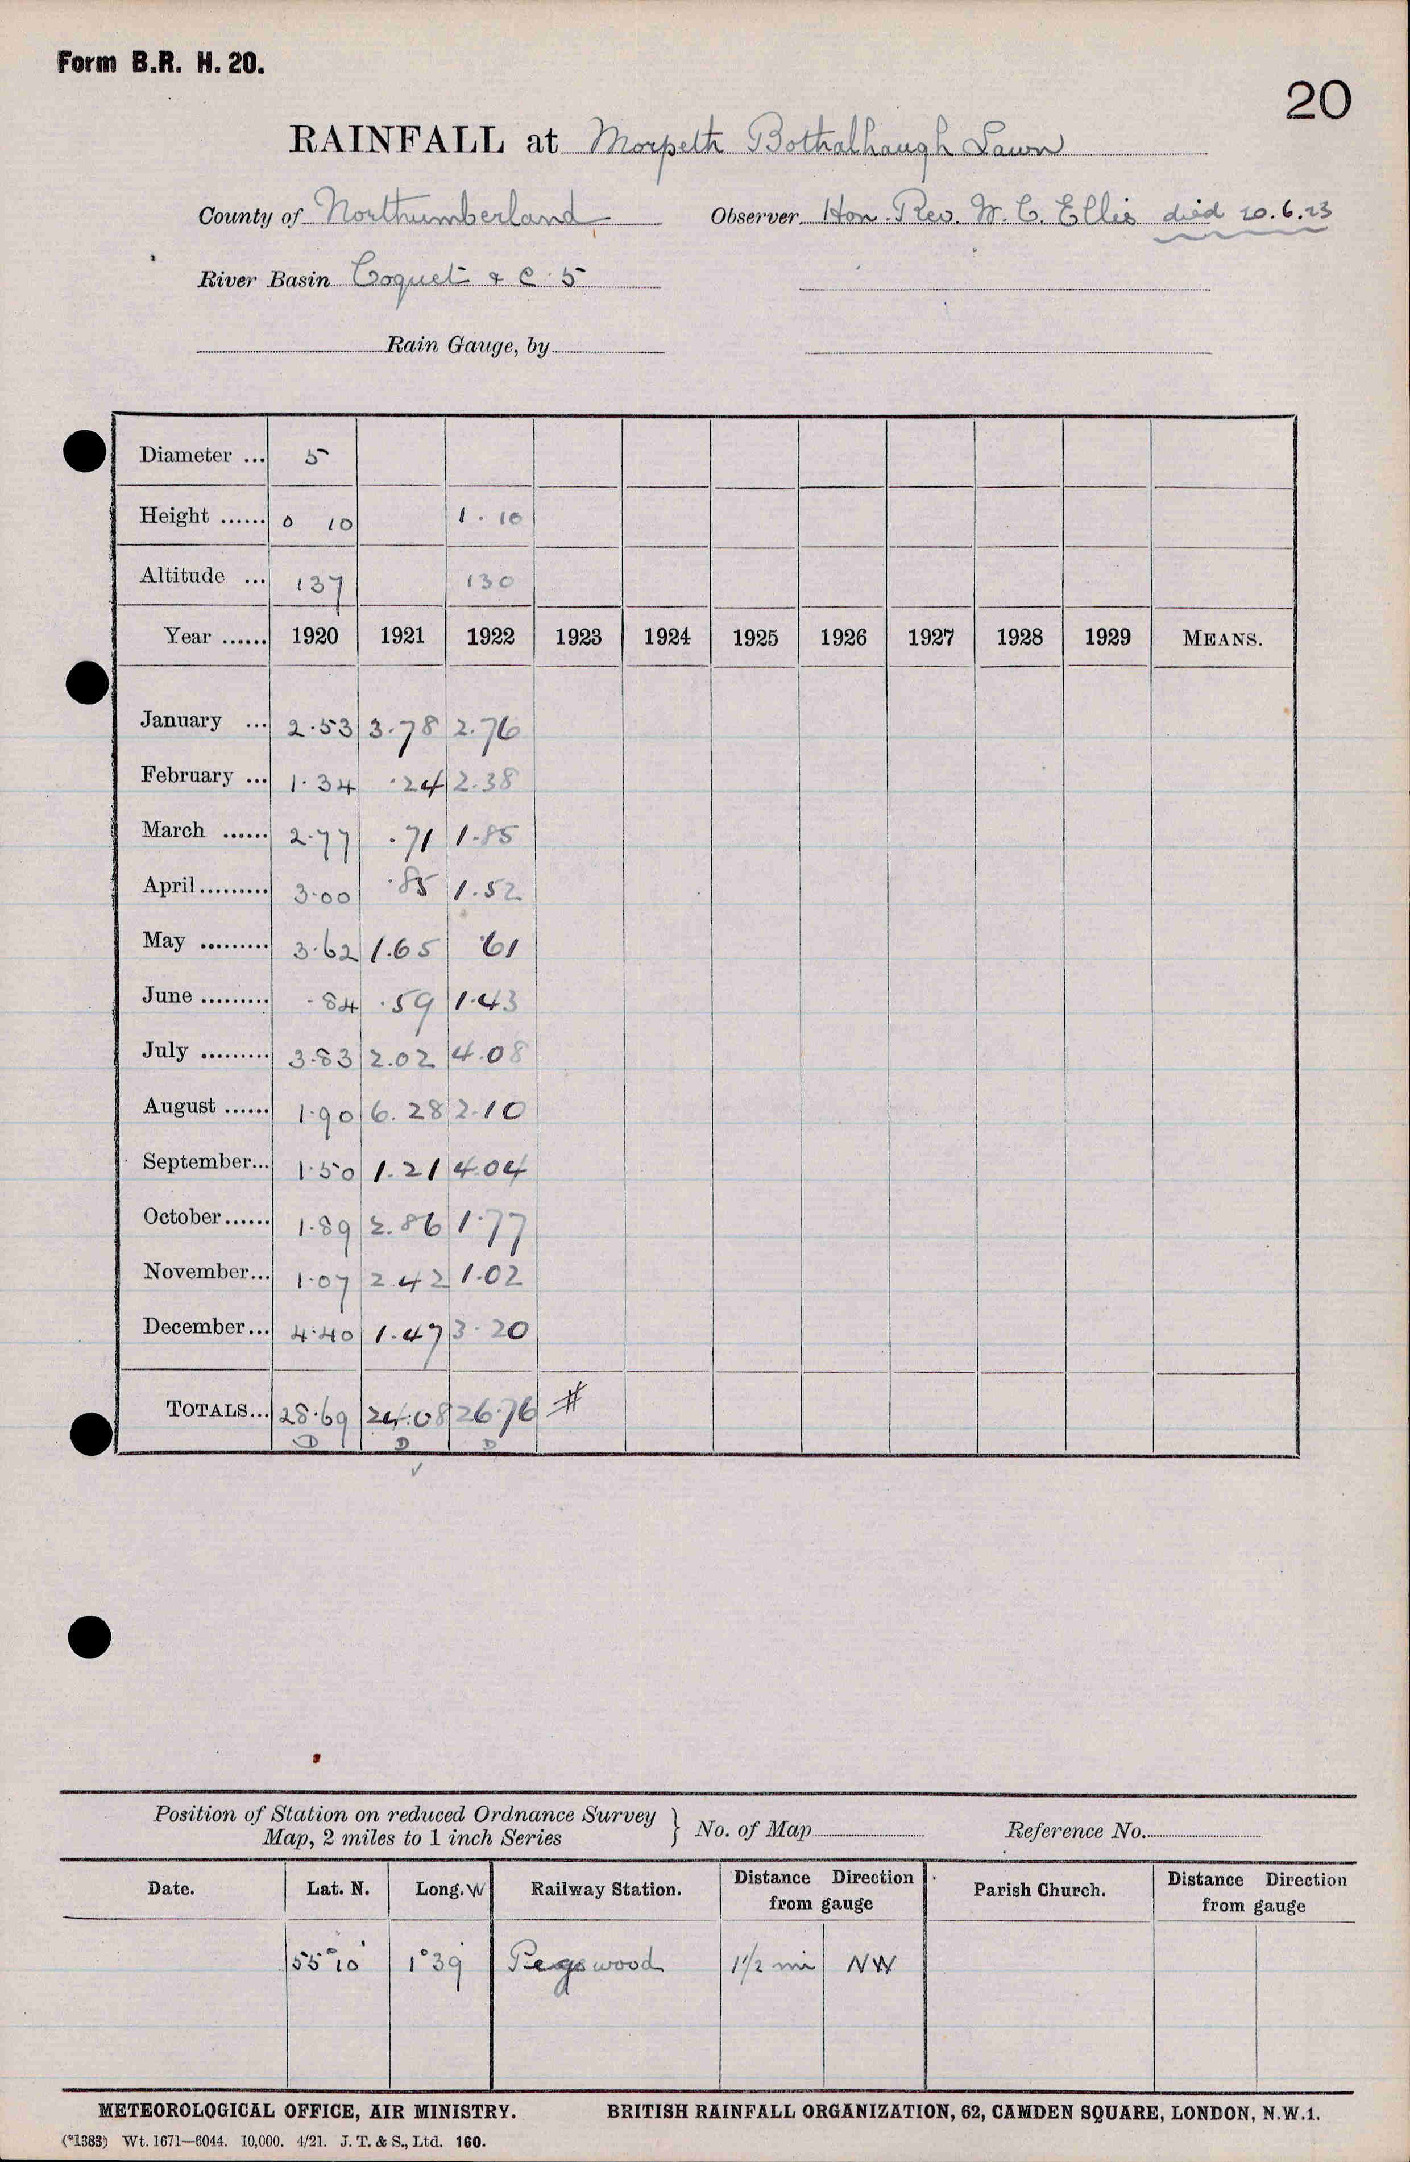 Form B.R. H. 20.
20
RAINFALL at Morpeth Bothalhaugh Lawn
County of Northumberland Observer Hon. Rev. W. C. Ellis died 20.6.23
River Basin Coquet & C. 5
Rain Gauge, by
Diameter ... 5
Height ...... 0 10 1. 10
Altitude ... 137 130
Year ...... 1920 1921 1922 1923 1924 1925 1926 1927 1928 1929 MEANS.
January ... 2.53 3.78 2.76
February ... 1.34 .24 2.38
March ...... 2.77 .71 1.85
April ......... 3.00 .85 1.52
May ......... 3.62 1.65 .61
June ......... .84 .59 1.43
July ......... 3.83 2.02 4.08
August ...... 1.90 6.28 2.10
September... 1.50 1.21 4.04
October...... 1.89 2.86 1.77
November... 1.07 2.42 1.02
December... 4.40 1.47 3.20
TOTALS... 28.69 24.08 26.76 #
D D D
✓
Position of Station on reduced Ordnance Survey
Map, 2 miles to 1 inch Series } No. of Map Reference No.
Date. Lat. N. Long. W Railway Station. Distance Direction from gauge Parish Church. Distance Direction from gauge
55°10' 1°39' Pegswood 1 1/2 mi NW
METEOROLOGICAL OFFICE, AIR MINISTRY. BRITISH RAINFALL ORGANIZATION, 62, CAMDEN SQUARE, LONDON, N.W.1.
(*1383) Wt. 1671—6044. 10,000. 4/21. J. T. & S., Ltd. 160.